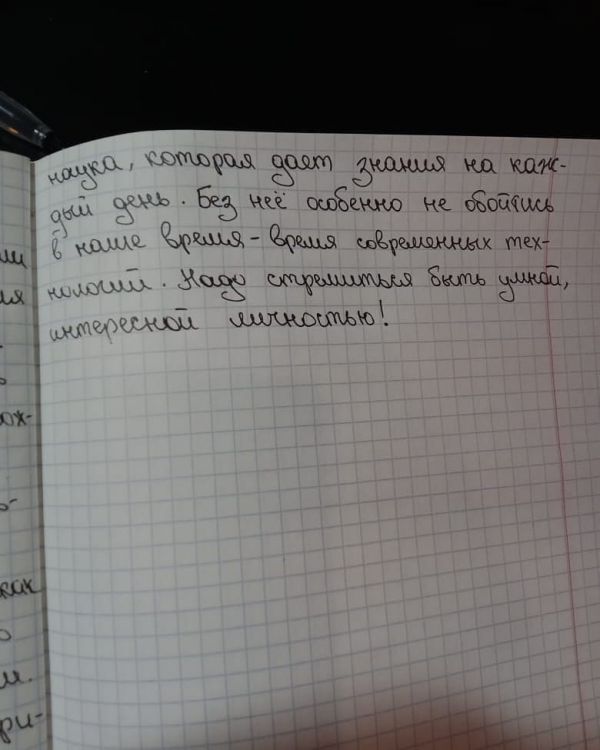 наука, которая дает знания на каж-
дый день. Без неё особенно не обойтись
в наше время - время современных тех-
нологий. Надо стремиться быть умной,
интересной личностью!
ли
ия
ож-
о-
как
о
м.
ри-